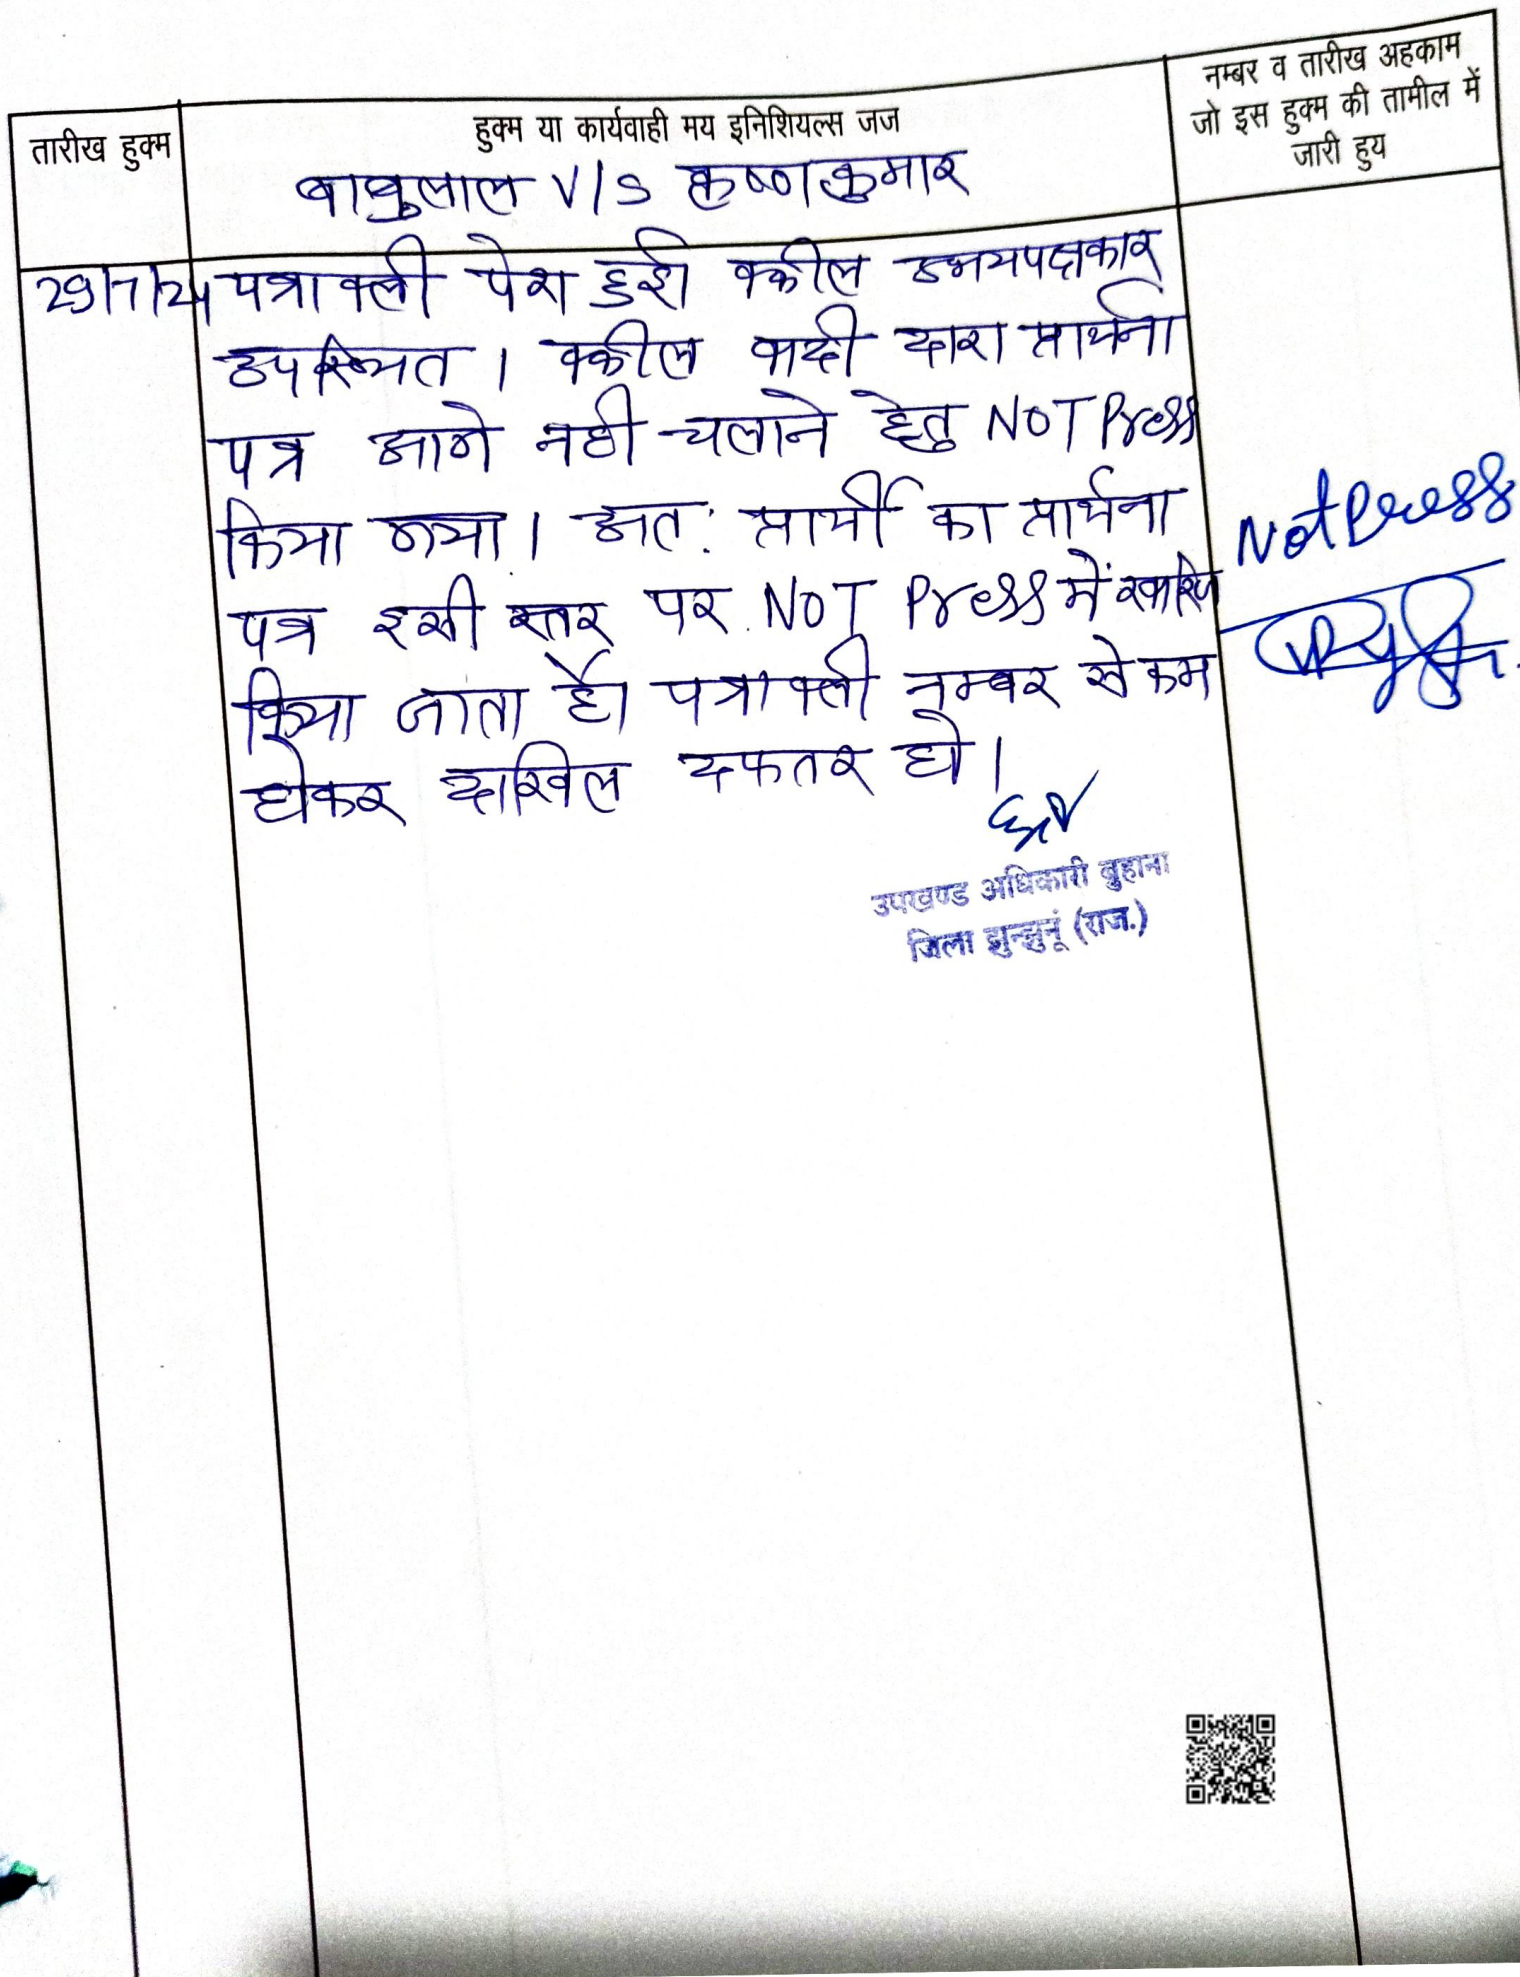 तारीख हुक्म
हुक्म या कार्यवाही मय इनिशियल्स जज
नम्बर व तारीख अहकाम
जो इस हुक्म की तामील में
जारी हुय
बाबुलाल V/S कृष्णकुमार
29/7/24 पत्रावली पेश हुई। वकील उभयपक्षकार
उपस्थित । वकील वादी द्वारा प्रार्थना
पत्र आगे नही चलाने हेतु NOT Press
किया गया । अत: प्रार्थी का प्रार्थना
पत्र इसी स्तर पर NOT Press में खारिज
किया जाता है। पत्रावली नम्बर से कम
होकर दाखिल दफतर हो ।
Not Press
उपखण्ड अधिकारी बुहाना
जिला झुन्झुनूं (राज.)